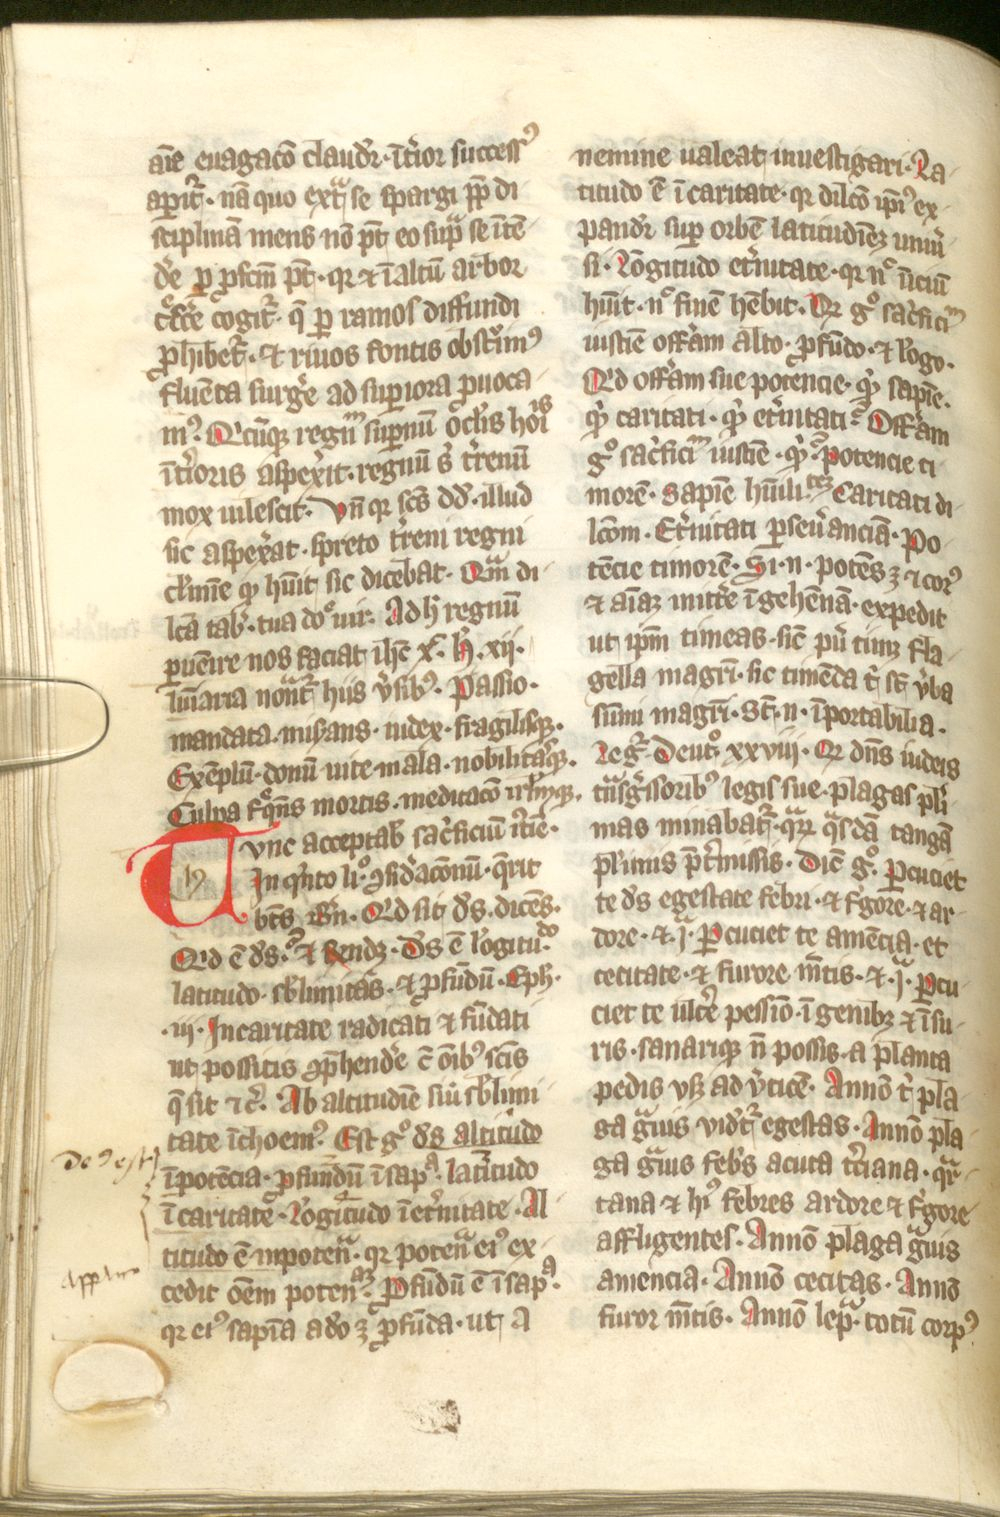 aīe euagacō claudr̄· īt̄ior success᷒
aꝑit᷑· nā quo ext̄ se spargi ꝓp̄ di
sciplinā mens nō pt̄ eo sup̄ se itē
dr̄e ꝑ ꝓfcm̄ pt̄· qr ⁊ ī altū arbor
cogit᷑· q̄ ꝑ ramos diffundi
ꝓhibet᷑· ⁊ riuos fontis obstr̄im᷒
fluēta surgr̄e ad suꝑiora ꝓuoca
m᷒· Qcūqꝫ regnū suꝑnū oclīs hoīs
īt̄ioris aspexit· regnū s̄ t̄renū
mox uilescit· Vn̄ qr scs̄ dd̄· illud
sic aspex̄at· spreto t̄reni regni
clīmīe qd̄ hūit sic dicebat· Qm̄ di
lcā tab̄· tua do͛ uir· Ad h̄ regnū
ꝑuēire nos faciat ih̄c x̄· h̄· xij·
lūīaria noāt᷑ hiis v̄sib᷒· Passio·
mandata· miserans· iudex· fragilisqꝫ·
Exēplū· donū uite· mala· nobilitasqꝫ·
Culpa fqn̄s mortis· medicacō
Tvnc acceptab̄ sacr̄ficiū
In qn̄to li͛· ↄsid̄acōnū· qr̄it
btūs Bn̄· Qd sit ds̄· dicēs·
Qd ē ds̄·͛ ⁊ r̄endꝫ· Ds̄ ē lōgitudo
latitudo· sb̄limitas· ⁊ ꝓfūdū· Eph̄·
·iij· In caritate radicati ⁊ fūdati
ut possitis ꝯp̄hendr̄e c̄ oīb᷒ scīs
q̄ sit ⁊c̄· Ab altitudīe siū sb̄limi
tate īchoem᷒· Est gͦ ds̄ altitudo
ī potēcia· ꝓfundū ī sapᵃ· latitudo
ī caritate· Lōgitudo ī et̄nitate· Al
titudo ē in potenᵃ· qr potenᵃ ei᷒ ex
cedit oēm potenᵃꝫ· Ꝓfūdū ē ī sapᵃ·
qr ei᷒ sapīa adͦ ꝫ ꝓfūda· ut A
nemine ualeat inuestigari· La
titudo ē ī caritate· qr dilcō ip̄i᷒ ex
pandr̄ suꝑ orbē latitudīeꝫ uniū
si· Lōgitudo et̄nitate· qr nͨ īiciū
hūit· nͨ finē hēbit· Qr gͦ sac̄ficīᵐ
iusticīe offer̄am alto· ꝓfūdo· ⁊ lōgo·
Qd offer̄am sue potencie· qd̄ sapīe·
qd̄ caritati· qd̄ et̄nitati·͛ Offer̄am
gͦ sac̄ficīᵐ iusticīe· qd̄·͛ Potencie ti
morē· Sapīe hūiliᵗᵉꝫ Caritati di
lcōm· Et̄nitati ꝑseū̄anciā· Po
tēcie timorē· Si· n· potēs ꝫ ⁊ cor᷒
⁊ aīaꝫ mitt̄e ī gehēnā· expedit
ut ip̄m timeas· sic̄ pu͛ timꝫ fla
gella magr̄i· sic timēda t̄ st̄ v̄ba
sūmi magr̄i· St̄· n· īportabilia·
Legr̄· Deut͛ xxviii· Qr dn̄s iudeis
t̄nsḡssorib᷒ legis sue· plagas pl̄i
mas minabat᷑· qᵃꝝ qᵃsdā tangā
pl̄imis p̄t̄missis· Dic̄ gͦ· Ꝑcuciet
te ds̄ egestate febri· ⁊ frīgore· ⁊ ar
dore· ⁊· jᵃ· Ꝑcuciet te amēcia· et
cecitate· ⁊ furore mētis· ⁊· jᵃ· Ꝑcu
ciet te ulcer̄e pessīo· ī genibꝫ ⁊ ī su
ris· sanariqꝫ n̄ possis· a planta
pedis vsqꝫ ad v̄ticē· Annō t̄ pla
ga gᵃuis vidr̄ egestas· Annō pla
ga gᵃuis febris acuta t̄ciana· qᵃr
tana ⁊ hi᷒ febres ardore ⁊ frīgore
affligentes· Annō plaga gᵃuis
amencia· Annō cecitas· Annō
furor mētis· Annō lepᵃ· totū corp᷒